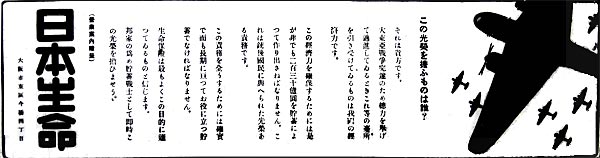 この光榮を擔ふものは誰?
それは貴方です。
大東亞戰爭完遂のため總力を擧げ
て邁進してゐるときこれ等の毫所
を引き受けてゐるものは我國の經
濟力です。
この經濟力を確保するためには是
が非でも二百三十億圓を貯蓄によ
つて作り出さねばなりません。こ
れは銃後國民に與へられた光榮あ
る責務です。
この責務を全うするためには確實
で而も長期に亘つてお役に立つ貯
蓄でなければなりません。
生命保險は最もよくこの目的に適
つてゐるものと信じます。
邦家の爲め貯蓄戰士として即時こ
の光榮を擔ひませう。
(營業案内贈呈)
日本生命
大阪市東區今橋四丁目